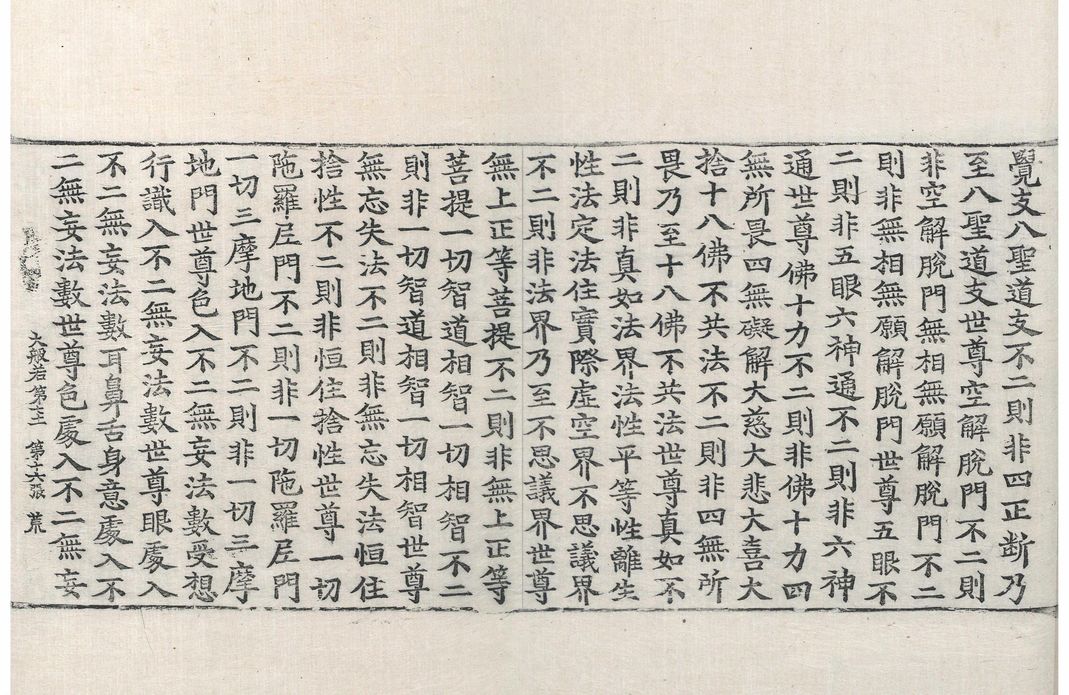 覺支八聖道支不二則非四正断乃
至八聖道支世尊空解脫門不二則
非空解脫門無相無願解脫門不二
則非無相無願解脫門世尊五眼不
二則非五眼六神通不二則非六神
通世尊佛十力不二則非佛十力四
無所畏四無礙解大慈大悲大喜大
捨十八佛不共法不二則非四無所
畏乃至十八佛不共法世尊真如不
二則非真如法界法性平等性離生
性法定法住實際虛空界不思議界
不二則非法界乃至不思議界世尊
無上正等菩提不二則非無上正等
菩提一切智道相智一切相智不二
則非一切智道相智一切相智世尊
無忘失法不二則非無忘失法恒住
捨性不二則非恒住捨性世尊一切
陁羅尼門不二則非一切陁羅尼門
一切三摩地門不二則非一切三摩
地門世尊色入不二無妄法數受想
行識入不二無妄法數世尊眼處入
不二無妄法數耳鼻舌身意處入不
二無妄法數世尊色處入不二無妄
大般若第 第十六張 荒